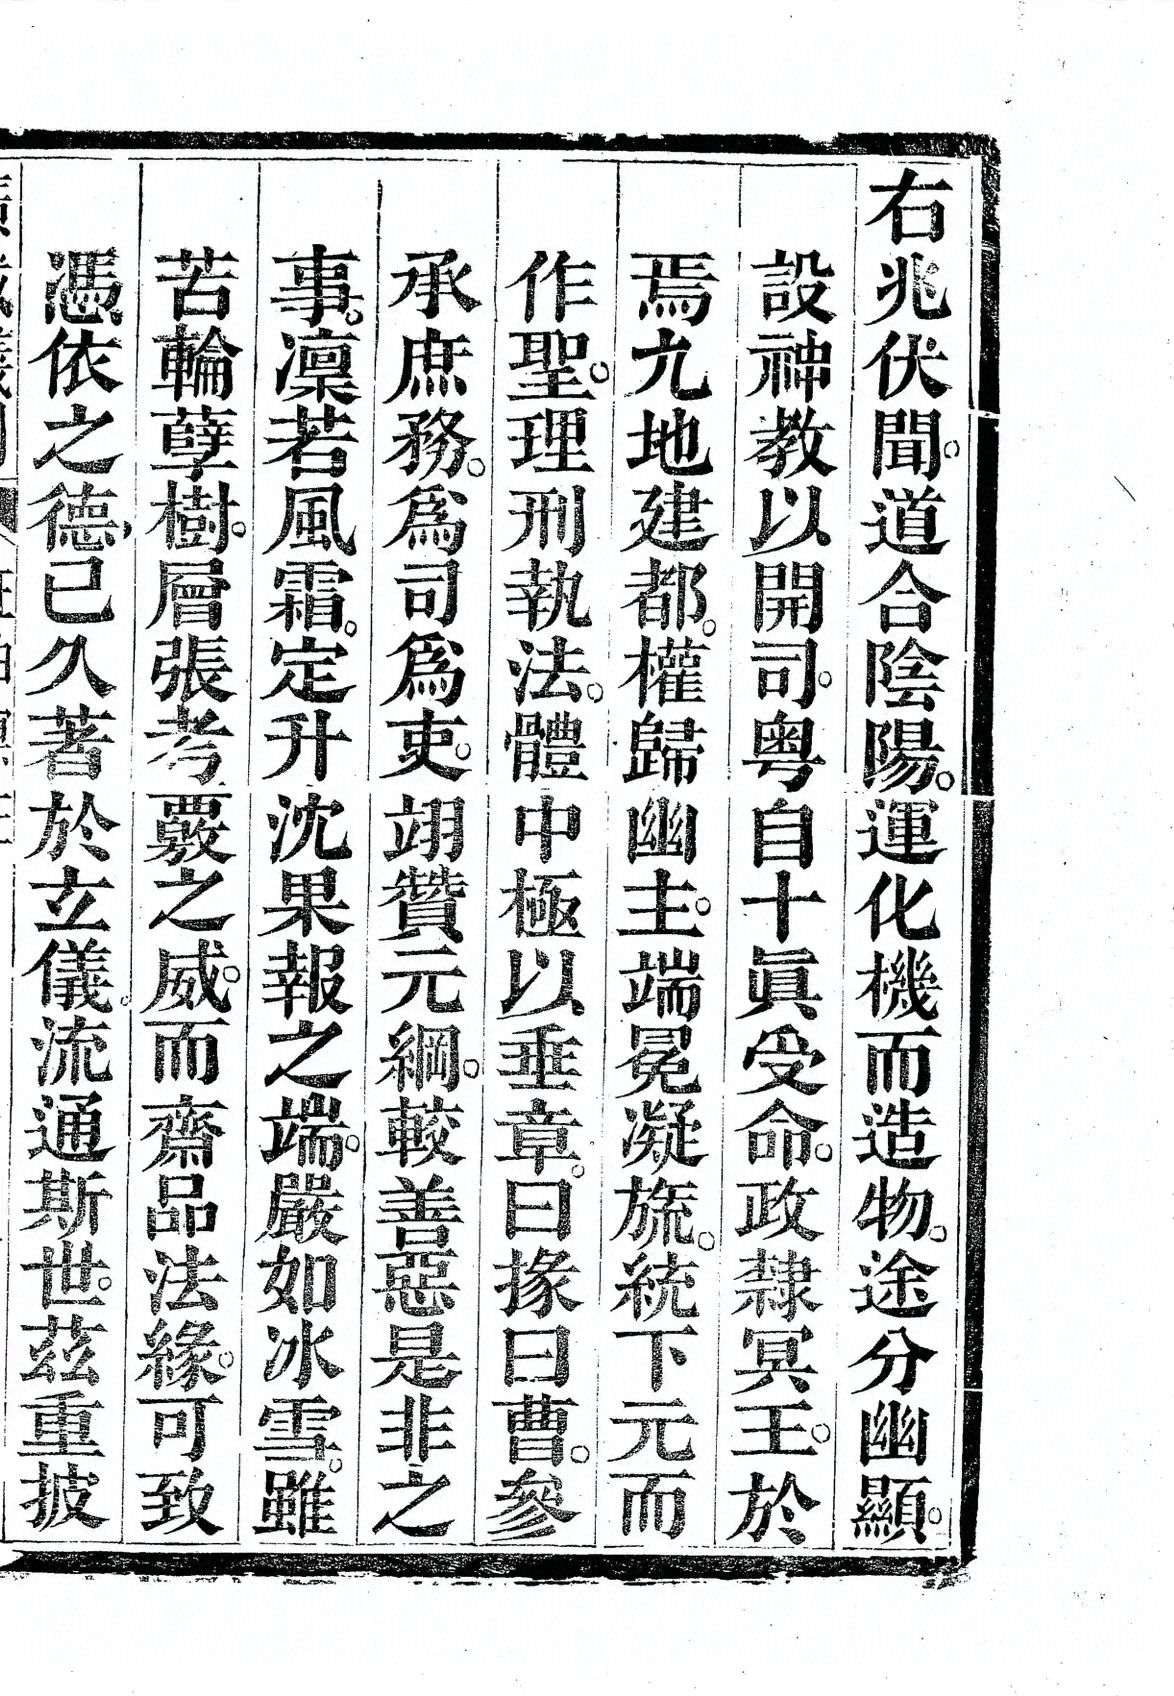 右兆伏聞。道合陰陽。運化機而造物。途分幽顯。
設神教以開司。粤自十眞受命。政隸冥王。於
焉九地建都。權歸幽主。端冕凝旒。統下元而
作聖。理刑執法。體中極以垂章。曰掾曰曹。參
承庶務。爲司爲吏。翊贊元綱。較善惡是非之
事。凛若風霜。定升沈果報之端。嚴如冰雪。雖
苦輪孽樹。層張考覈之威。而齋品法緣。可致
憑依之德。已久著於立儀。流通斯世。茲重披